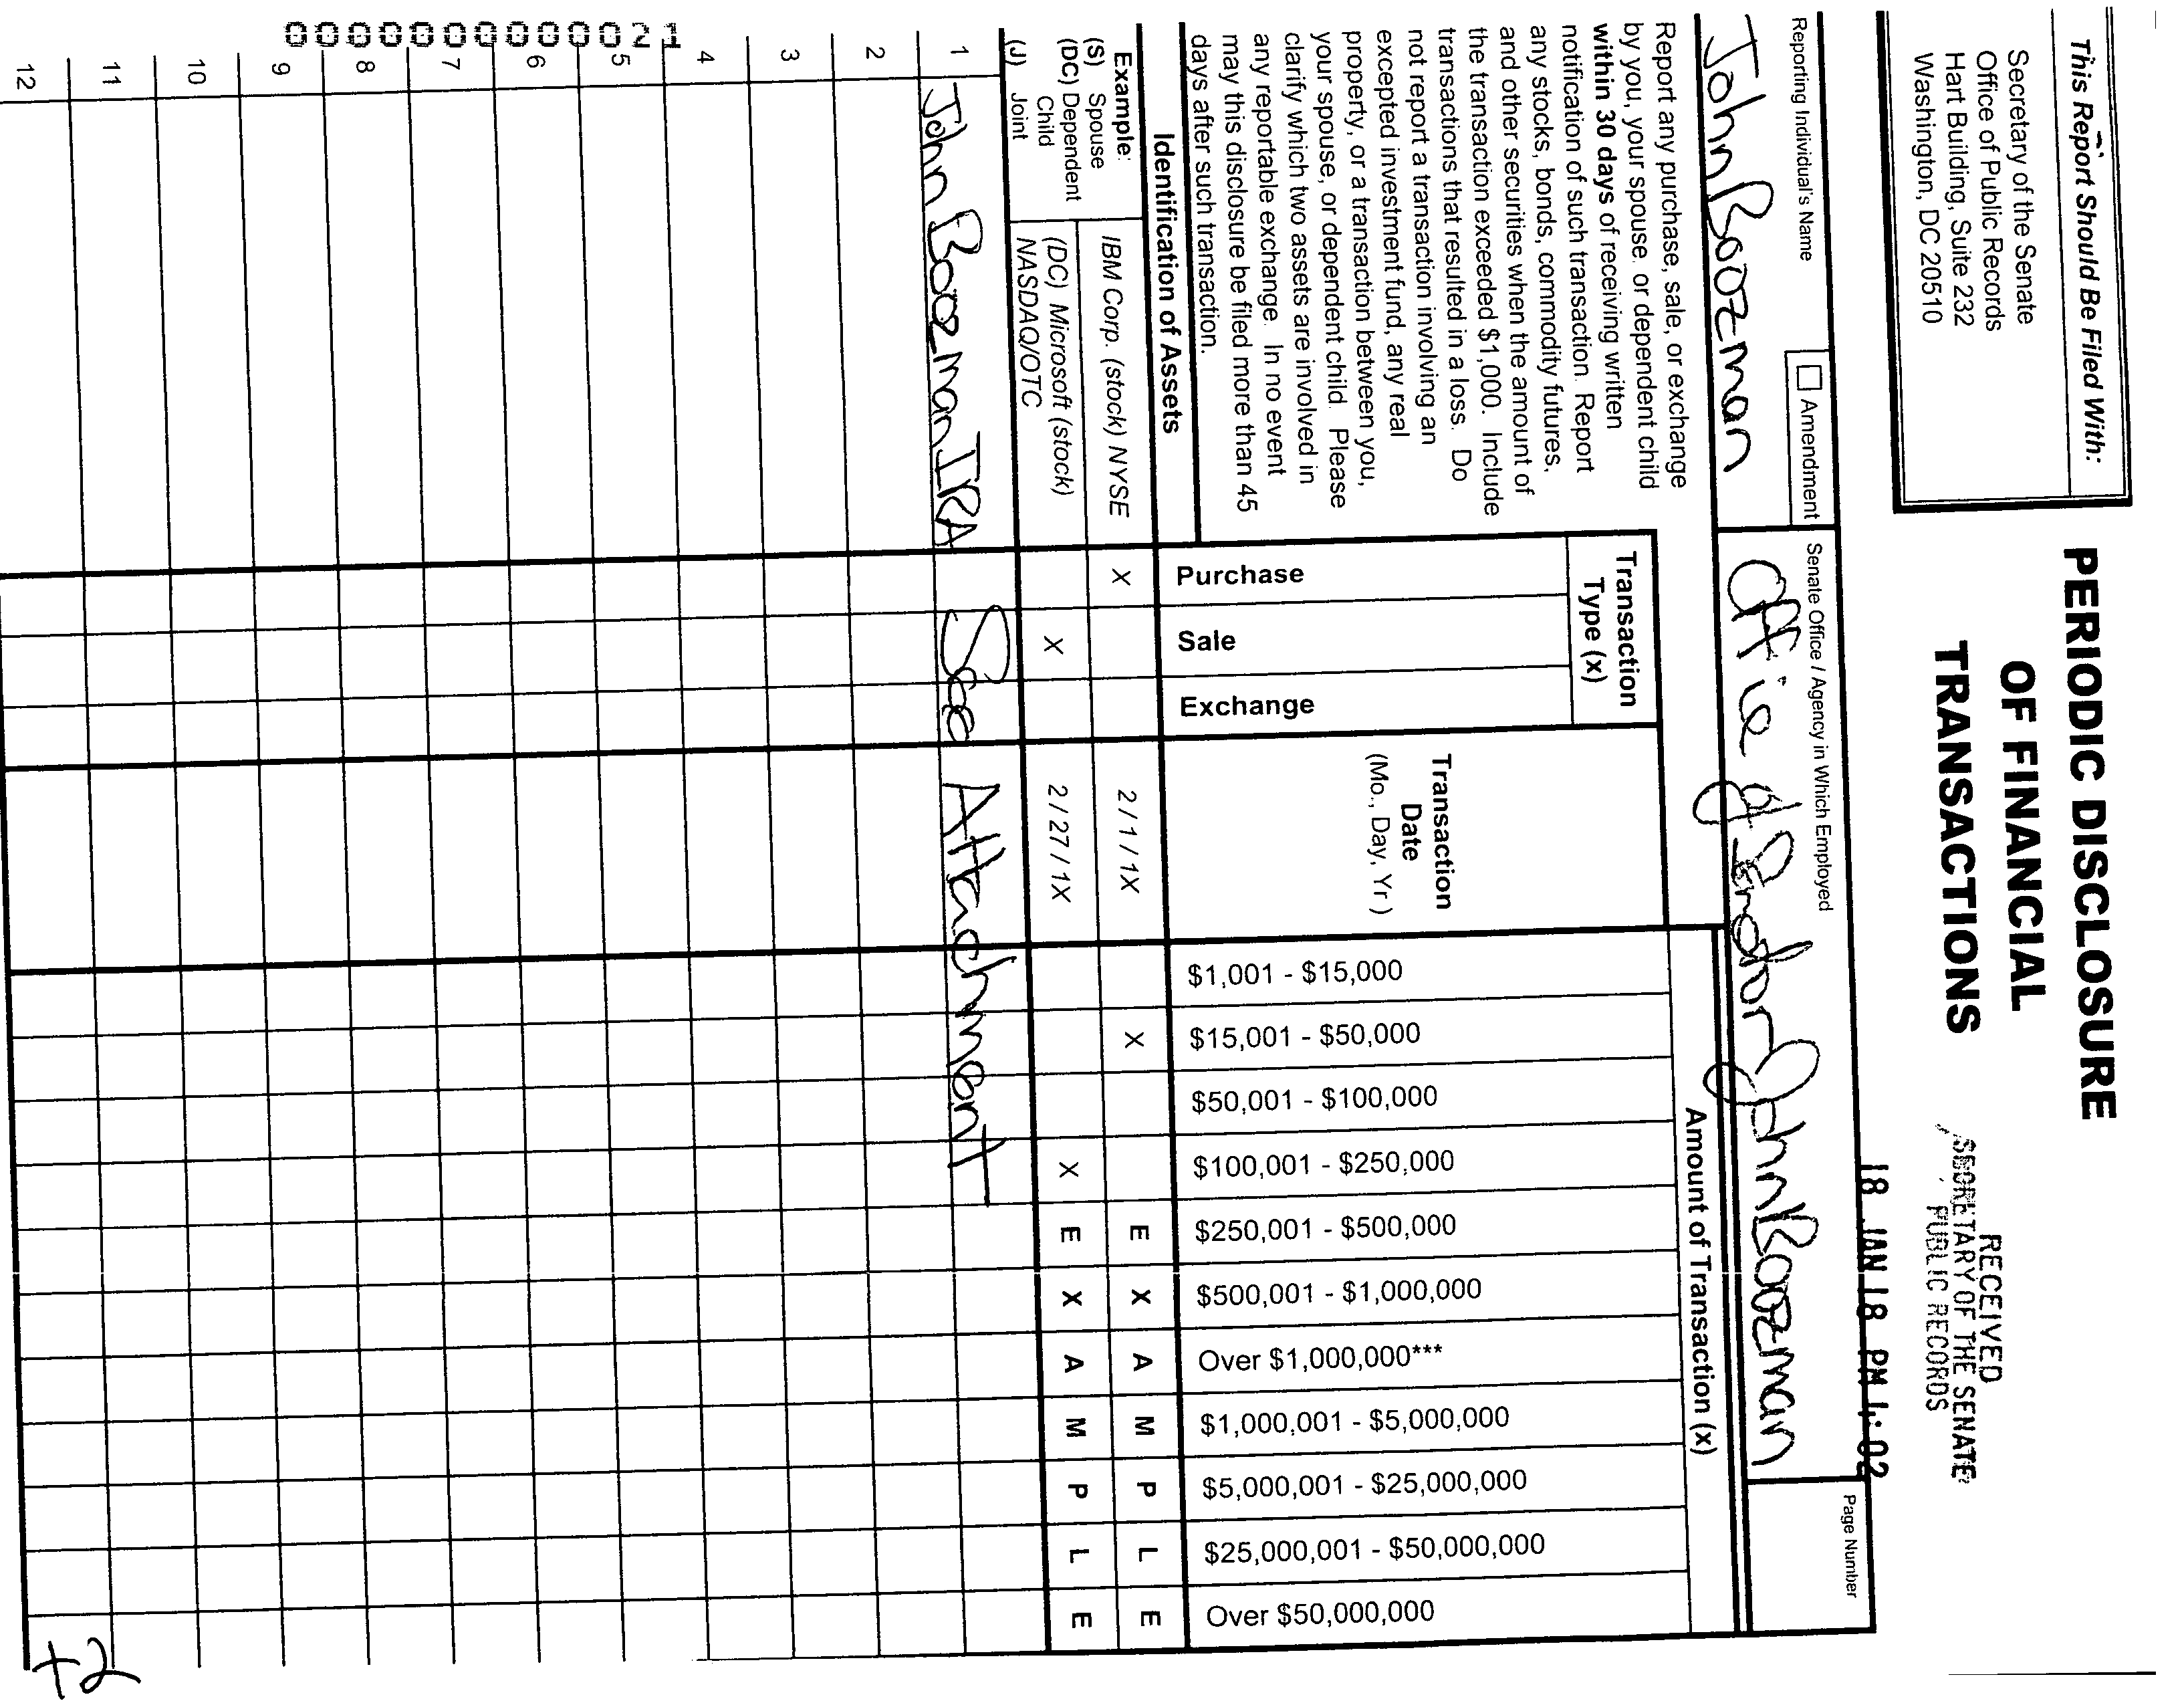 This Report Should Be Filed With:
Secretary of the Senate
Office of Public Records
Hart Building, Suite 232
Washington, DC 20510
PERIODIC DISCLOSURE
OF FINANCIAL
TRANSACTIONS
RECEIVED
SECRETARY OF THE SENATE
PUBLIC RECORDS
18 JAN 18 PM 4:02
Reporting Individual's Name
Amendment
John Boozman
Senate Office / Agency in Which Employed
Office of Senator John Boozman
Page Number
Report any purchase, sale, or exchange
by you, your spouse, or dependent child
within 30 days of receiving written
notification of such transaction. Report
any stocks, bonds, commodity futures,
and other securities when the amount of
the transaction exceeded $1,000. Include
transactions that resulted in a loss. Do
not report a transaction involving an
excepted investment fund, any real
property, or a transaction between you,
your spouse, or dependent child. Please
clarify which two assets are involved in
any reportable exchange. In no event
may this disclosure be filed more than 45
days after such transaction.
Transaction
Type (x)
Purchase
Sale
Exchange
Transaction
Date
(Mo., Day, Yr )
Amount of Transaction (x)
$1,001 - $15,000
$15,001 - $50,000
$50,001 - $100,000
$100,001 - $250,000
$250,001 - $500,000
$500,001 - $1,000,000
Over $1,000,000***
$1,000,001 - $5,000,000
$5,000,001 - $25,000,000
$25,000,001 - $50,000,000
Over $50,000,000
Identification of Assets
Example: IBM Corp. (stock) NYSE X 2 / 1 / 1X X E X A M P L E
(S) Spouse
(DC) Dependent
Child
(J) Joint
(DC) Microsoft (stock)
NASDAQ/OTC
X 2 / 27 / 1X X E X A M P L E
1 John Boozman IRA See Attachment
2
3
4
5
6
7
8
9
10
11
12
00000000000021
+2